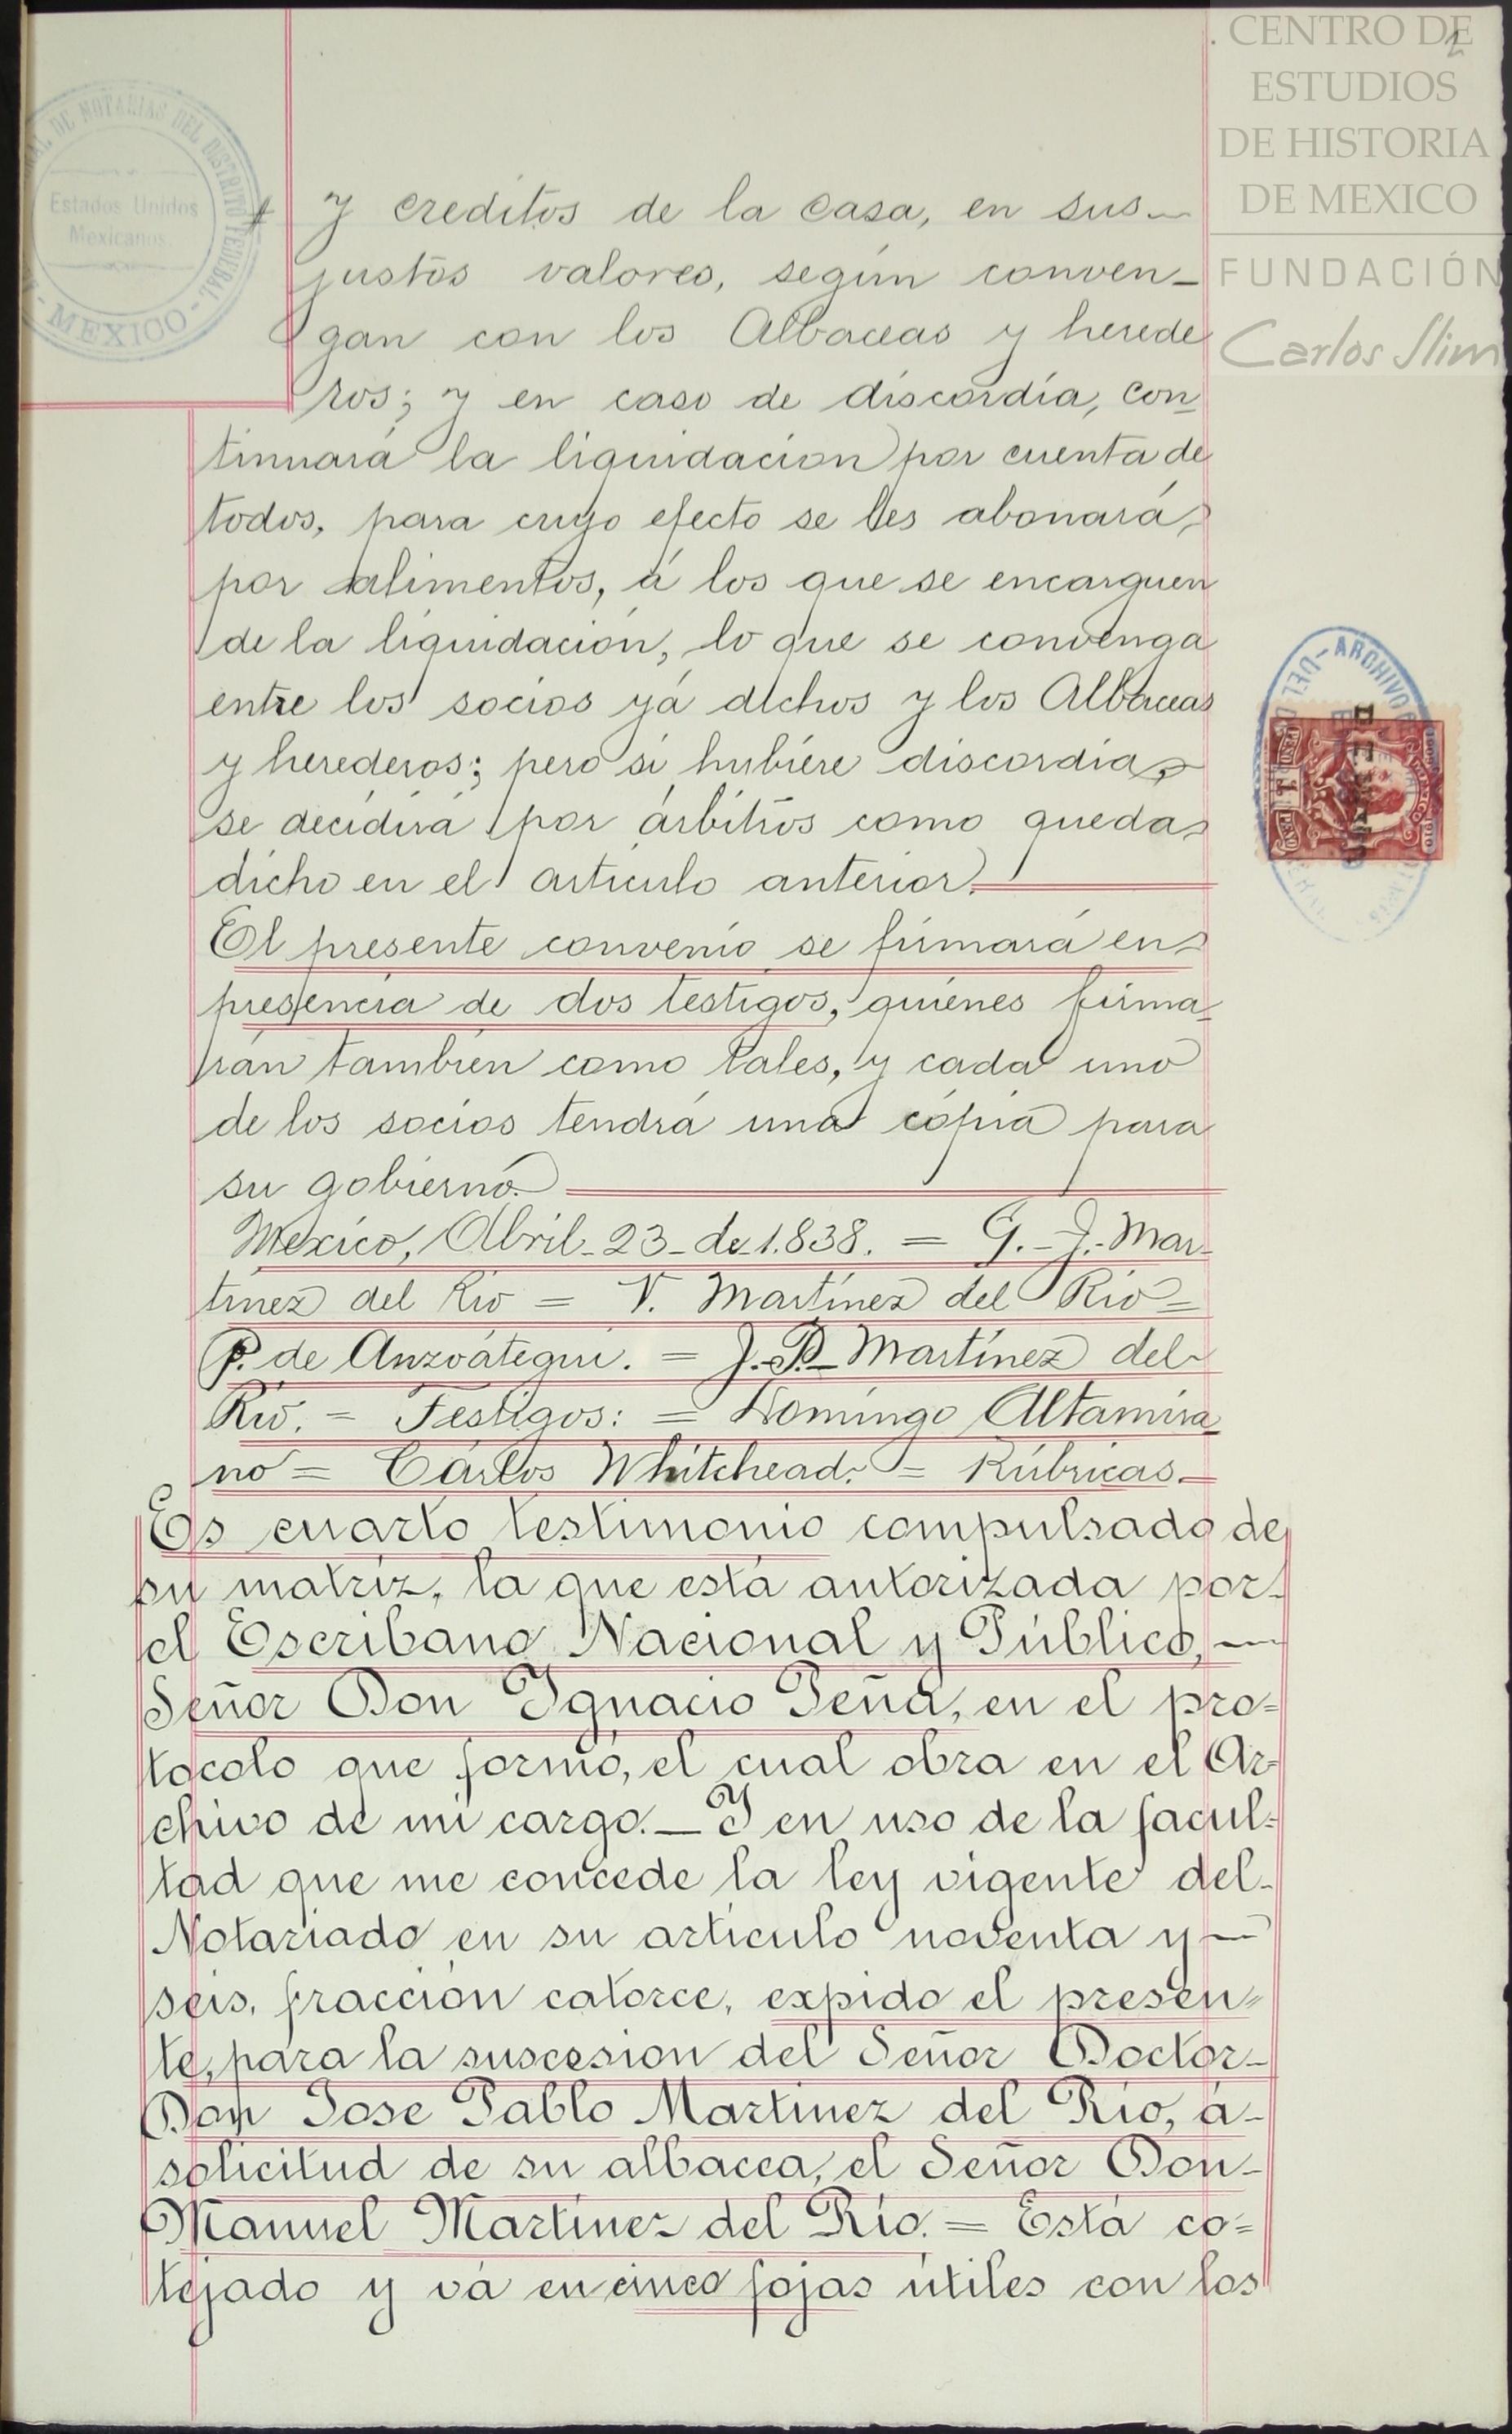 CENTRO DE
ESTUDIOS
DE HISTORIA
DE MEXICO
FUNDACIÓN
Carlos Slim
DE NOTARIAS DEL DISTRITO FEDERAL
Estados Unidos
Mexicanos.
- MEXICO -
y creditos de la casa, en sus
justos valores, según conven-
gan con los Albaceas y herede
ros; y en caso de discordia, con-
tinuará la liquidacion por cuenta de
todos, para cuyo efecto se les abonará,
por alimentos, á los que se encarguen
de la liquidación, lo que se convenga
entre los socios yá dichos y los Albaceas
y herederos; pero si hubiere discordia,
se decidirá por árbitros como queda
dicho en el articulo anterior.
El presente convenio se firmará en
presencia de dos testigos, quienes firma-
rán tambien como tales, y cada uno
de los socios tendrá una cópia para
su gobierno.
México, Abril-23-de 1.838. = G.-J.-Mar-
tínez del Rio = V. Martínez del Rio =
P. de Anzoátegui. = J.-P.- Martínez del
Rio. - Testigos: = Domingo Altamira-
no = Cárlos Whitehead. = Rúbricas.-
Es cuarto testimonio compulsado de
su matriz, la que está autorizada por
el Escribano Nacional y Público,
Señor Don Ignacio Peña, en el pro=
tocolo que formó, el cual obra en el Ar-
chivo de mi cargo._Y en uso de la facul=
tad que me concede la ley vigente del-
Notariado en su artículo noventa y
seis, fracción catorce, expido el presen=
te, para la suscesion del Señor Doctor-
Don Jose Pablo Martinez del Rio, á-
solicitud de su albacea, el Señor Don-
Manuel Martínez del Río. = Está co=
tejado y vá en cinco fojas útiles con los
ARCHIVO
PESO 1 PESO
1910